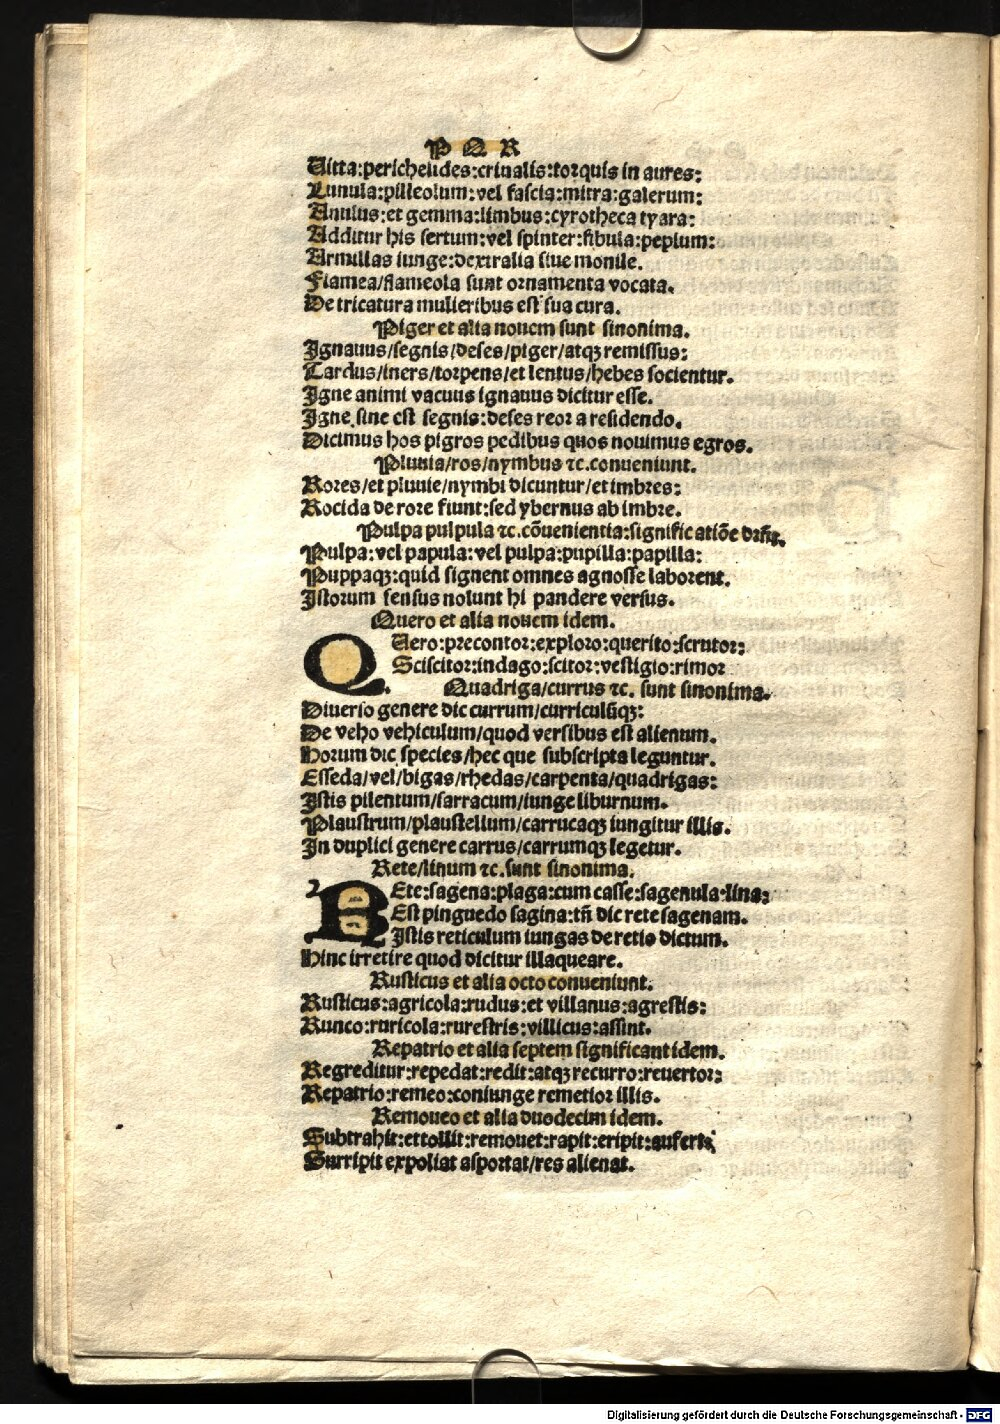 P Q R
Uitta:perichelides:crinalis:torquis in aures:
Lunula:pilleolum:vel fascia:mitra:galerum:
Anulus:et gemma:limbus:cyrotheca tyara:
Additur his sertum:vel spinter:fibula:peplum:
Armillas iunge:dextralia siue monile.
Flamea/flameola sunt ornamenta vocata.
De tricatura mulieribus est sua cura.
Piger et alia nouem sunt sinonima.
Ignauus/segnis/deses/piger/atqꝫ remissus:
Tardus/iners/torpens/et lentus/hebes socientur.
Igne animi vacuus ignauus dicitur esse.
Igne sine est segnis:deses reor a residendo.
Dicimus hos pigros pedibus quos nouimus egros.
Pluuia/ros/nymbus ⁊c.conueniunt.
Rores/et pluuie/nymbi dicuntur/et imbres:
Rocida de rore fiunt:sed ybernus ab imbre.
Pulpa pulpula ⁊c.cōuenientia:significatiōe drn̄t.
Pulpa:vel papula:vel pulpa:pupilla:papilla:
Puppaqꝫ:quid signent omnes agnosse laborent.
Istorum sensus nolunt hi pandere versus.
Quero et alia nouem idem.
QUero:precontor:exploro:querito:scrutor:
Sciscitor:indago:scitor:vestigio:rimor
Quadriga/currus ⁊c. sunt sinonima.
Diuerso genere dic currum/curriculūqꝫ:
De veho vehiculum/quod versibus est alienum.
Horum dic species/hec que subscripta leguntur.
Esseda/vel/bigas/rhedas/carpenta/quadrigas:
Istis pilentum/sarracum/iunge liburnum.
Plaustrum/plaustellum/carrucaqꝫ iungitur illis.
In duplici genere carrus/carrumqꝫ legetur.
Rete/linum ⁊c.sunt sinonima.
REte:sagena:plaga:cum casse:sagenula:lina:
Est pinguedo sagina:tn̄ dic rete sagenam.
Istis reticulum iungas de retis dictum.
Hinc irretire quod dicitur illaqueare.
Rusticus et alia octo conueniunt.
Rusticus:agricola:rudus:et villanus:agrestis:
Runco:ruricola:rurestris:villicus:assint.
Repatrio et alia septem significant idem.
Regreditur:repedat:redit:atqꝫ recurro:reuertor:
Repatrio:remeo:coniunge remetior illis.
Remoueo et alia duodecim idem.
Subtrahit:et tollit:remouet:rapit:eripit:aufert:
Surripit expoliat asportat/res alienat.
Digitalisierung gefördert durch die Deutsche Forschungsgemeinschaft - DFG